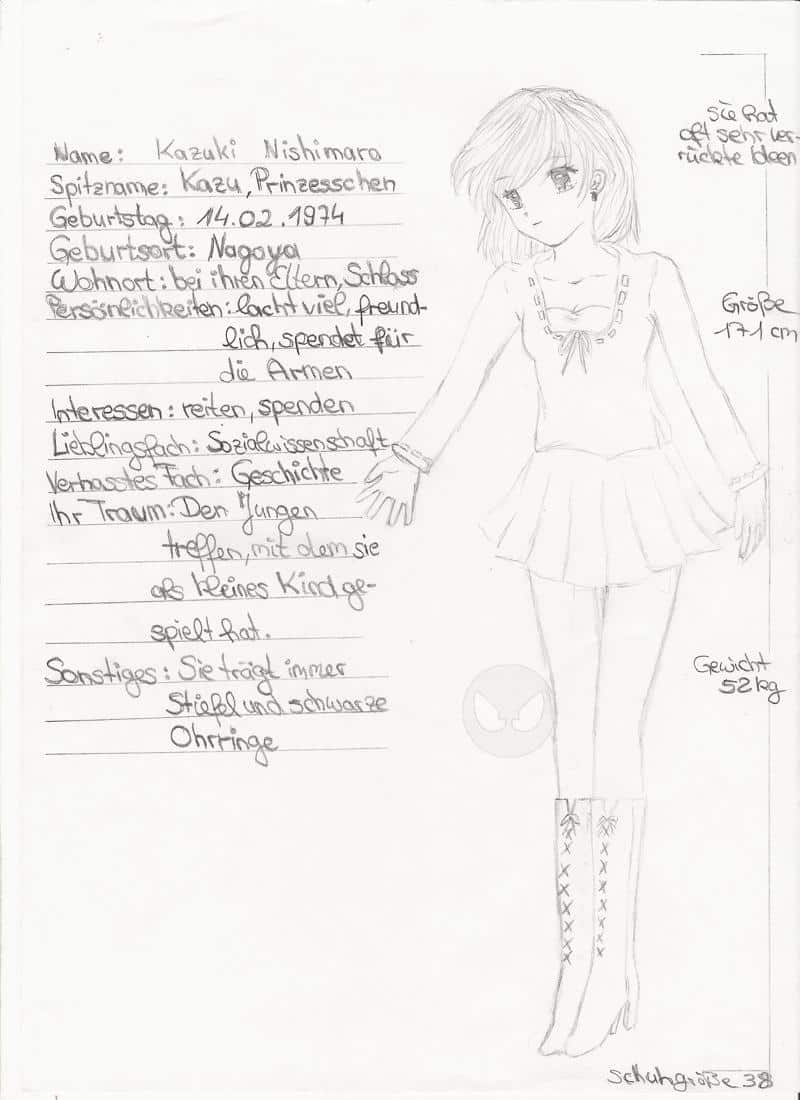 Name: Kazuki Nishimaro
Spitzname: Kazu, Prinzesschen
Geburtstag: 14.02.1974
Geburtsort: Nagoya
Wohnort: bei ihren Eltern, Schloss
Persönlichkeiten: lacht viel, freund-
lich, spendet für
die Armen
Interessen: reiten, spenden
Lieblingsfach: Sozialwissenschaft
Verhasstes Fach: Geschichte
Ihr Traum: Den Jungen
treffen, mit dem sie
als kleines Kind ge-
spielt hat.
Sonstiges: Sie trägt immer
Stiefel und schwarze
Ohrringe
sie hat
oft sehr ver-
rückte Ideen
Größe
171 cm
Gewicht
52 kg
Schuhgröße 38